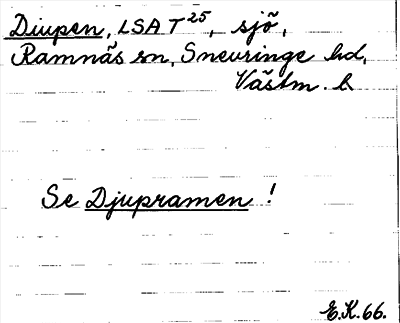 Diupen, LSA T25, sjö,
Ramnäs sn, Snevringe hd,
Västm. l.
Se Djupramen!
E.K. 66.